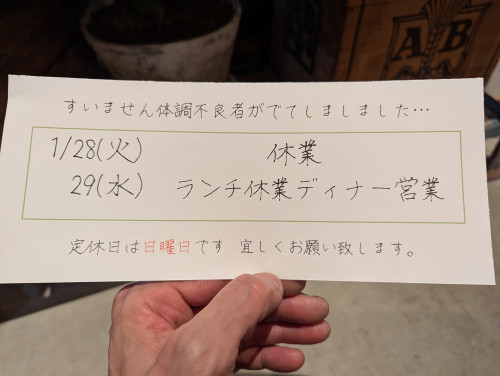 AB
すいません体調不良者がでてしましました…
1/28(火) 休業
29(水) ランチ休業ディナー営業
定休日は日曜日です 宜しくお願い致します。